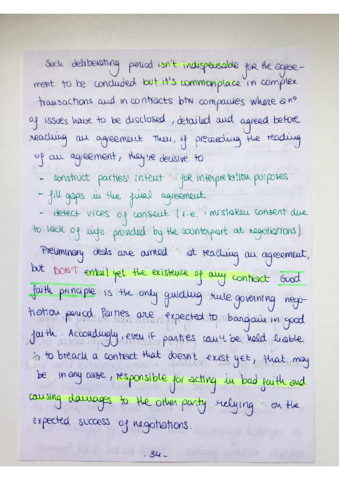 Such deliberating period isn't indispensable for the agree-
ment to be concluded but it's commonplace in complex
transactions and in contracts btw companies where a nº
of issues have to be disclosed, detailed and agreed before
reaching an agreement. Then, if preceeding the reading
of an agreement, they're decisive to
- construct parties' intent for interpretation purposes
- fill gaps in the final agreement
- detect vices of consent (i.e. : mistaken consent due
to lack of info provided by the counterpart at negotiations).
Preliminary deals are aimed at reaching an agreement,
but DON'T entail yet the existence of any contract. Good
faith principle is the only guiding rule governing nego-
tiation period. Parties are expected to bargain in good
faith. Accordingly, even if parties can't be held liable
to breach a contract that doesn't exist yet, that may
be in any case, responsible for acting in bad faith and
causing damages to the other party relying on the
expected success of negotiations.
- 34 -